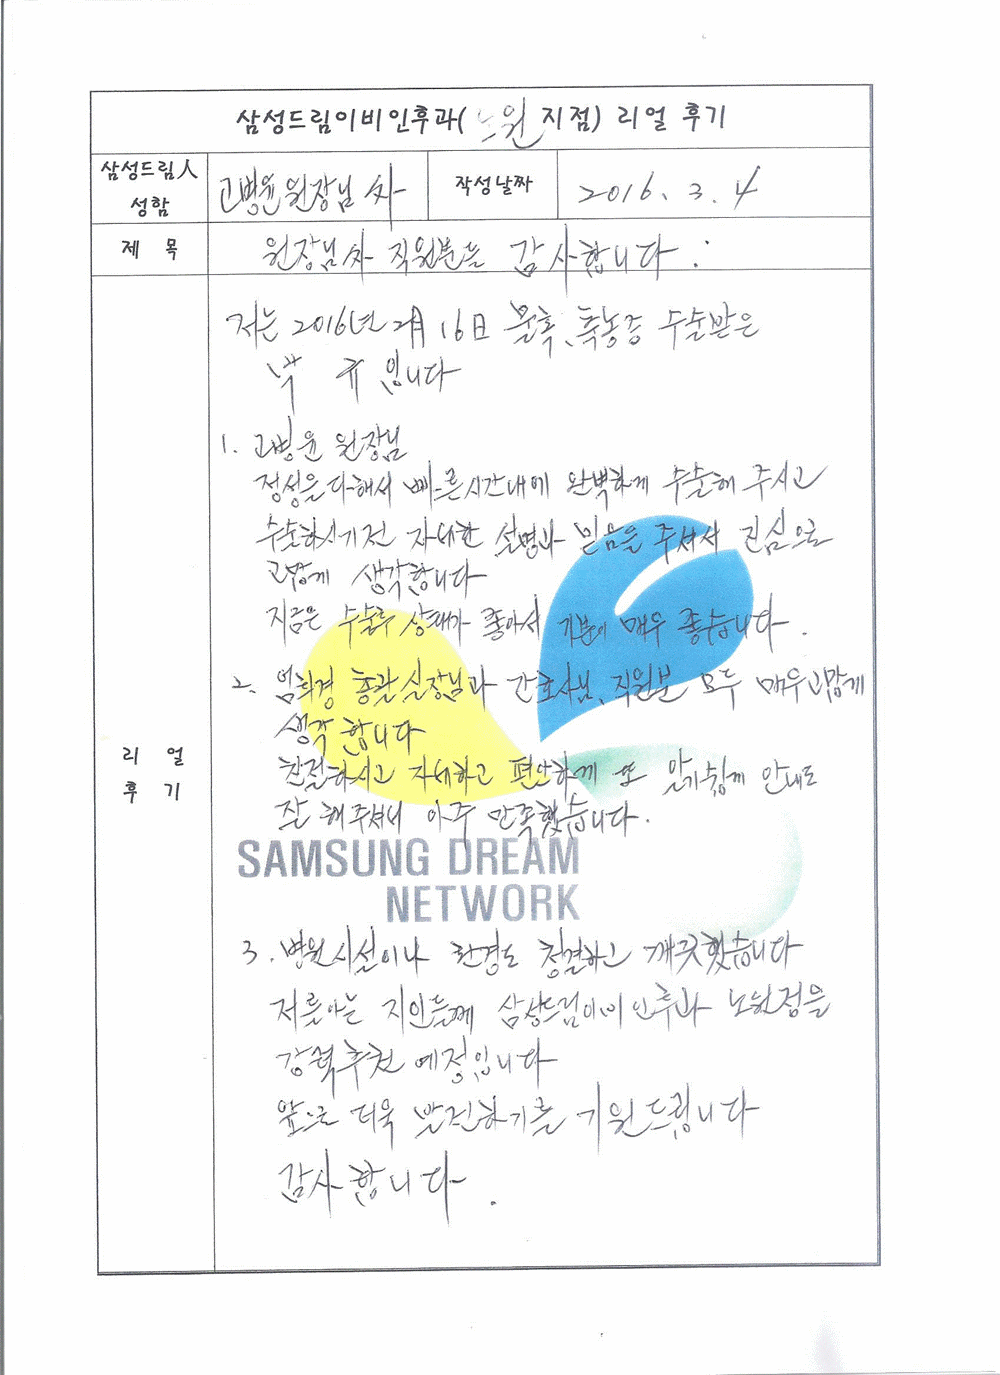 삼성드림이비인후과(노원 지점) 리얼 후기
삼성드림人 성함
고병윤 원장님 와
작성날짜
2016. 3. 4
제 목
원장님와 직원분들 감사합니다.
저는 2016년 2月 16日 문혹, 축농증 수술받은
박 규 입니다
1. 고병윤 원장님
정성을 다해서 빠른시간내에 완벽하게 수술해 주시고
수술하시기전 자세한 설명과 믿음을 주셔서 진심으로
고맙게 생각합니다
지금은 수술후 상태가 좋아서 기분이 매우 좋습니다.
2. 엄희경 총괄실장님과 간호사님, 직원분 모두 매우고맙게
생각 합니다
친절하시고 자세하고 편안하게 또 알기쉽게 안내도
잘 해주셔서 아주 만족했습니다.
리 얼
후 기
SAMSUNG DREAM
NETWORK
3. 병원시설이나 환경도 청결하고 깨끗했습니다
저를아는 지인들께 삼성드림이비인후과 노원점을
강력추천 예정입니다
앞으로 더욱 발전하기를 기원드립니다
감사합니다.